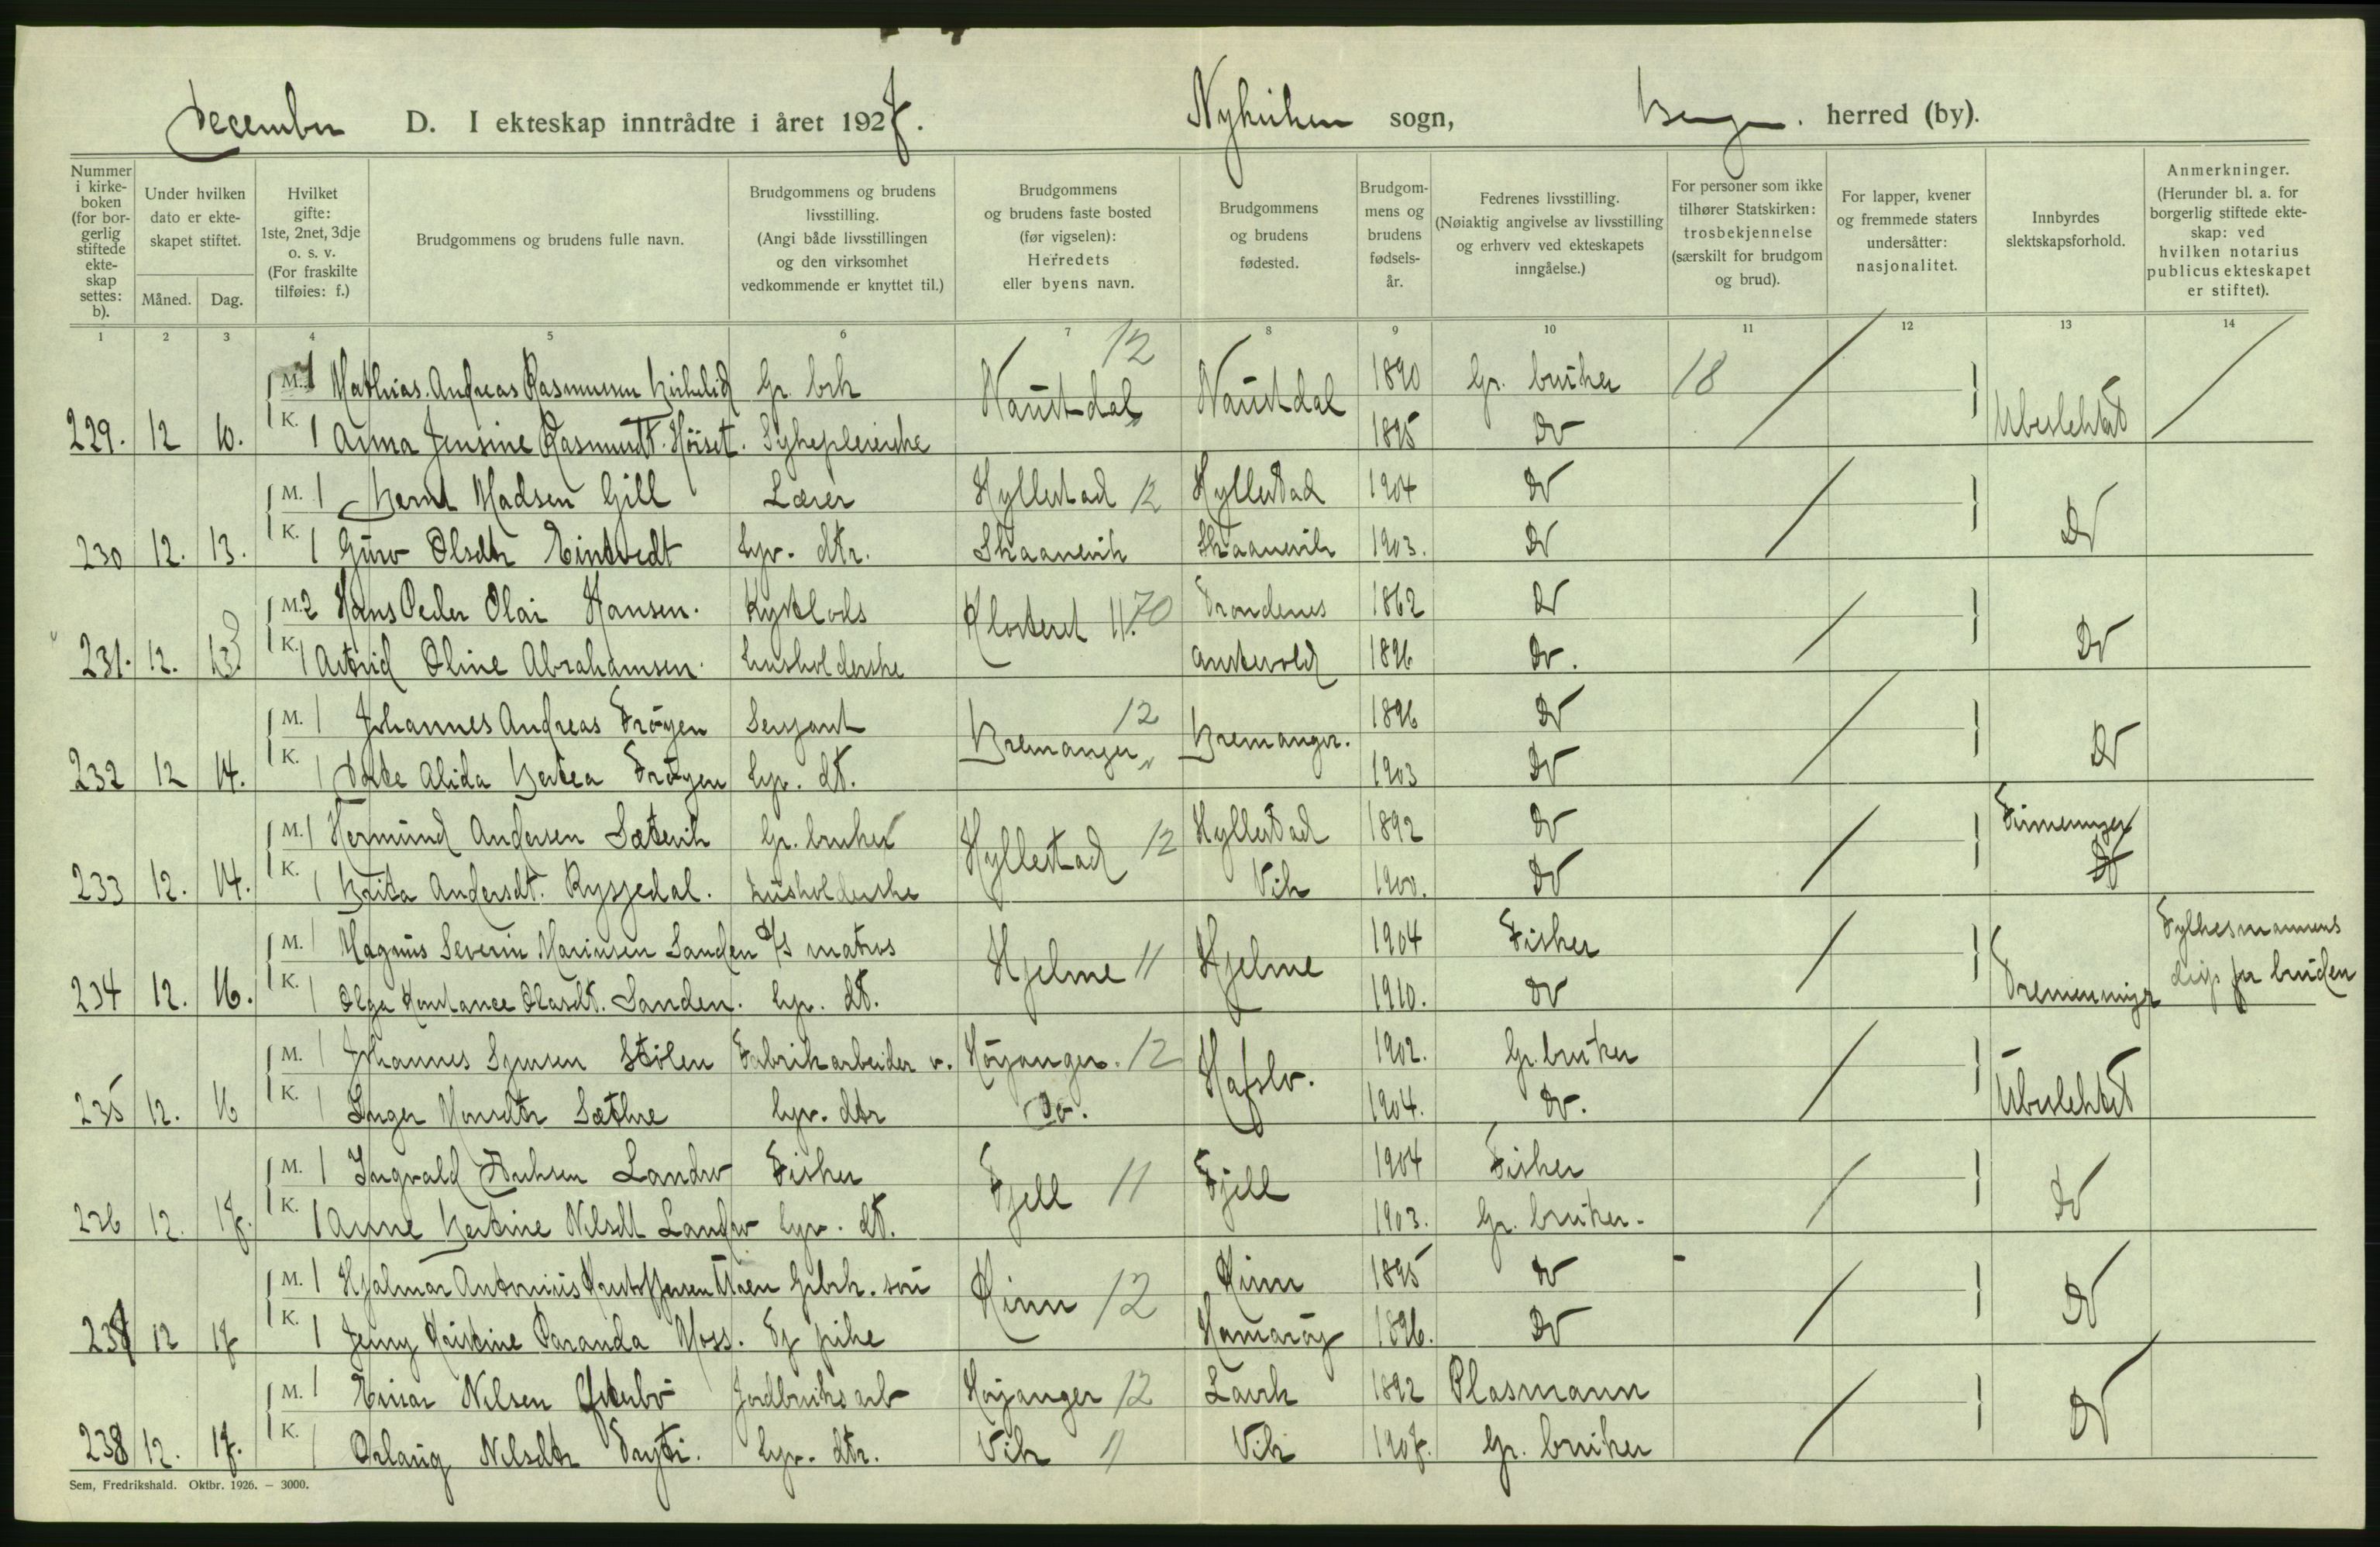 December D. I ekteskap inntrådte i året 1927. Nykirken sogn, Bergen. herred (by).
Nummer i kirkeboken (for borgerlig stiftede ekteskap settes: b).
Under hvilken dato er ekteskapet stiftet.
Måned. Dag.
Hvilket gifte: 1ste, 2net, 3dje o. s. v. (For fraskilte tilføies: f.)
Brudgommens og brudens fulle navn.
Brudgommens og brudens livsstilling. (Angi både livsstillingen og den virksomhet vedkommende er knyttet til.)
Brudgommens og brudens faste bosted (før vigselen): Herredets eller byens navn.
Brudgommens og brudens fødested.
Brudgommens og brudens fødselsår.
Fedrenes livsstilling. (Nøiaktig angivelse av livsstilling og erhverv ved ekteskapets inngåelse.)
For personer som ikke tilhører Statskirken: trosbekjennelse (særskilt for brudgom og brud).
For lapper, kvener og fremmede staters undersåtter: nasjonalitet.
Innbyrdes slektskapsforhold.
Anmerkninger. (Herunder bl. a. for borgerlig stiftede ekteskap: ved hvilken notarius publicus ekteskapet er stiftet).
1 2 3 4 5 6 7 8 9 10 11 12 13 14
M. 1 Mathias Andreas Rasmussen Kirkelid Gr. brk Naustdal 12 Naustdal 1890 Gr. bruker 18
229. 12 10. K. 1 Anna Jensine Rasmusdt. Höiset. Sykepleierske " 1895 Do Ubeslektet
M. 1 Bernt Madsen Gill Lærer Hyllestad 12 Hyllestad 1904 Do
230 12. 13. K. 1 Guro Olsdtr Eintvedt hjv. dtr. Skaanevik Skaanevik 1903. Do Do
M. 2 Hans Peder Olai Hansen. Kystlods Klosteret 11. 70 Trondenes 1862 Do
231. 12. 13. K. 1 Astrid Oline Abrahamsen. husholderske Austevold 1896 Do. Do
M. 1 Johannes Andreas Frøyen Sersjant Bremanger 12 Bremanger. 1896 Do
232 12 14. K. 1 Alida Bertea Frøyen hjv. dt. " 1903 Do Do
M. 1 Hermund Andersen Sætevik Gr. bruker Hyllestad 12 Hyllestad 1892 Do Firmenninger
233 12. 14. K. 1 Brita Andersdt. Rysjedal. husholderske Vik 1900. Do Do
M. 1 Magnus Severin Marinsen Sanden D/S matros Hjelme 11 Hjelme 1904 Fisker Fylkesmannens
234 12. 16. K. 1 Olga Konstance Olasdt. Sanden. hjv. dt. 1910. Do Tremenninger disp for bruden
M. 1 Johannes Stölen Fabrikarbeider v. Høyanger. 12 Hafslo. 1902. Gr. bruker
235 12. 16 K. 1 Inger Monsdtr Sæthre hjv. dtr Do. 1904. Do. Ubeslektet
M. 1 Ingvald Landro Fisker Fjell 11 Fjell 1904 Fisker
236 12. 17. K. 1 Anne Bertine Nilsdt Landro hjv. dt. 1903. Gr. bruker. Do
M. 1 Hjalmar Antonius Kristoffersen Gr brk. son Kinn 12 Kinn 1895 Do
237 12 17 K. 1 Jenny Kristine Paranda Moss. pike Hamarøy 1896. Do Do
M. 1 Einar Nilsen Jordbruks arb Høyanger 12 Lavik 1892 Plasmann
238 12. 17. K. 1 Orlaug Nilsdtr Tryti. hjv. dtr. Vik 11 Vik 1907. Gr. bruker Do
Sem, Fredrikshald. Oktbr. 1926. — 3000.